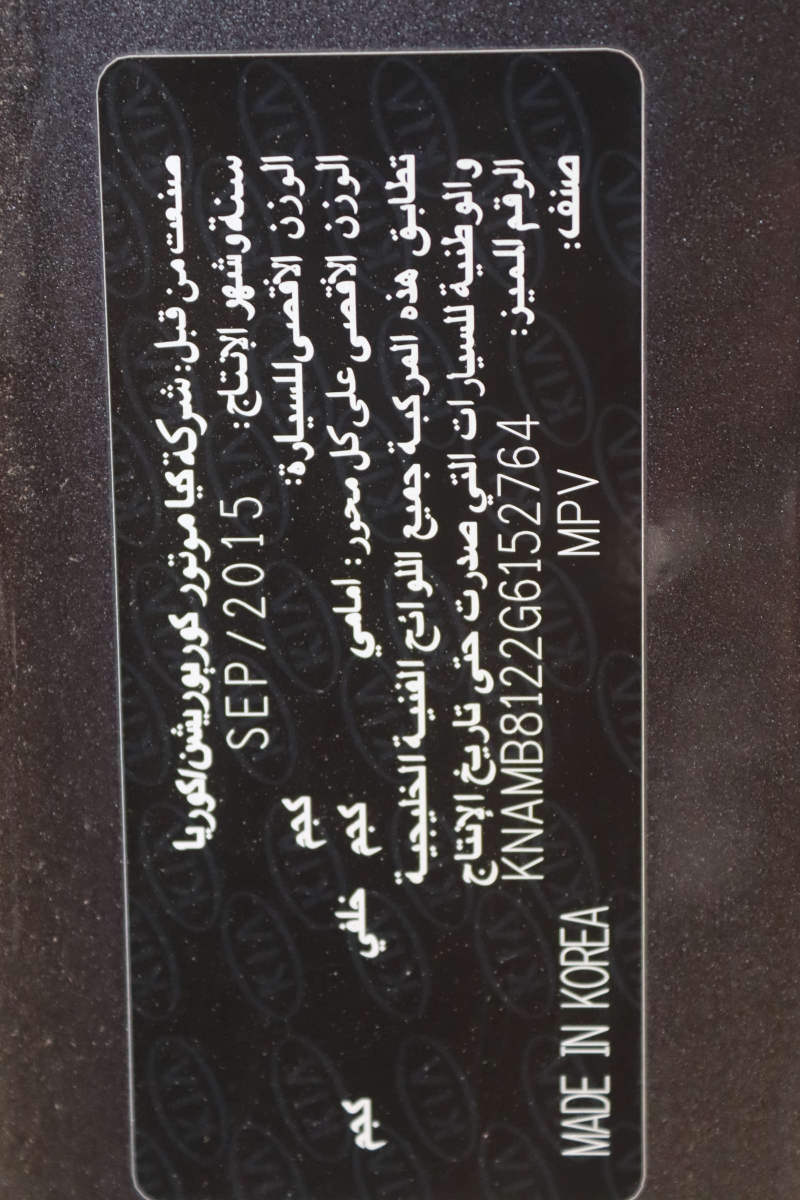 صنعت من قبل: شركة كيا موتور كوربوريشن/كوريا
سنة وشهر الإنتاج: SEP/2015
الوزن الاقصى للسيارة: كجم
الوزن الأقصى على كل محور: امامي كجم خلفي كجم
تطابق هذه المركبة جميع اللوائح الفنية الخليجية
والوطنية للسيارات التي صدرت حتى تاريخ الإنتاج
الرقم المميز: KNAMB8122G6152764
صنف: MPV MADE IN KOREA